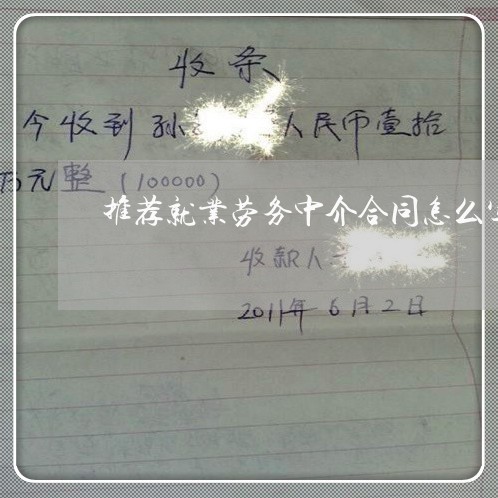 收条
今收到孙 人民币壹拾
万元整（100000）
推荐就業劳务中介合同怎么
收款人
2011年6月2日